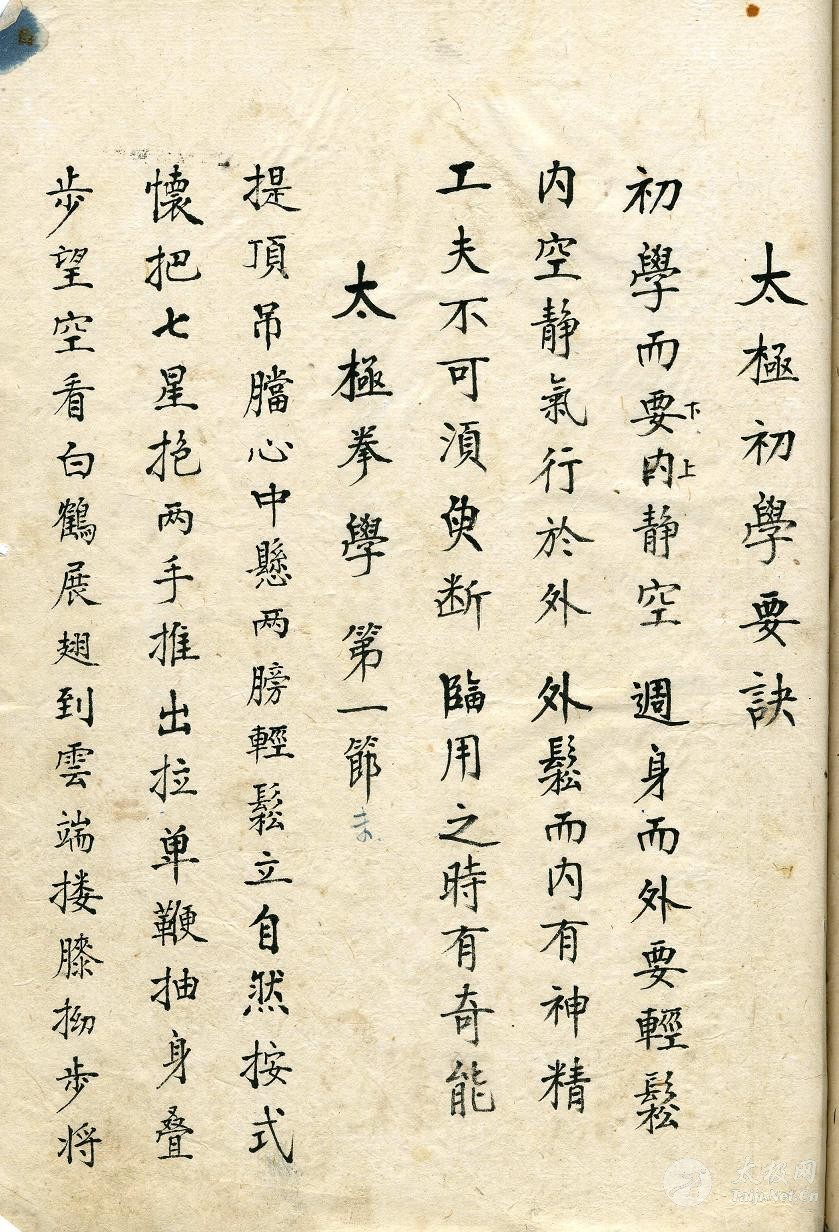 太極初學要訣
初學而要下内上静空 週身而外要輕鬆
内空静氣行於外 外鬆而内有神精
工夫不可須臾断 臨用之時有奇能
太極拳學 第一節
提頂吊膪心中懸两膀輕鬆立自然按式
懷把七星抱两手推出拉单鞭抽身叠
步望空看白鶴展翅到雲端搂膝拗步将
太极网